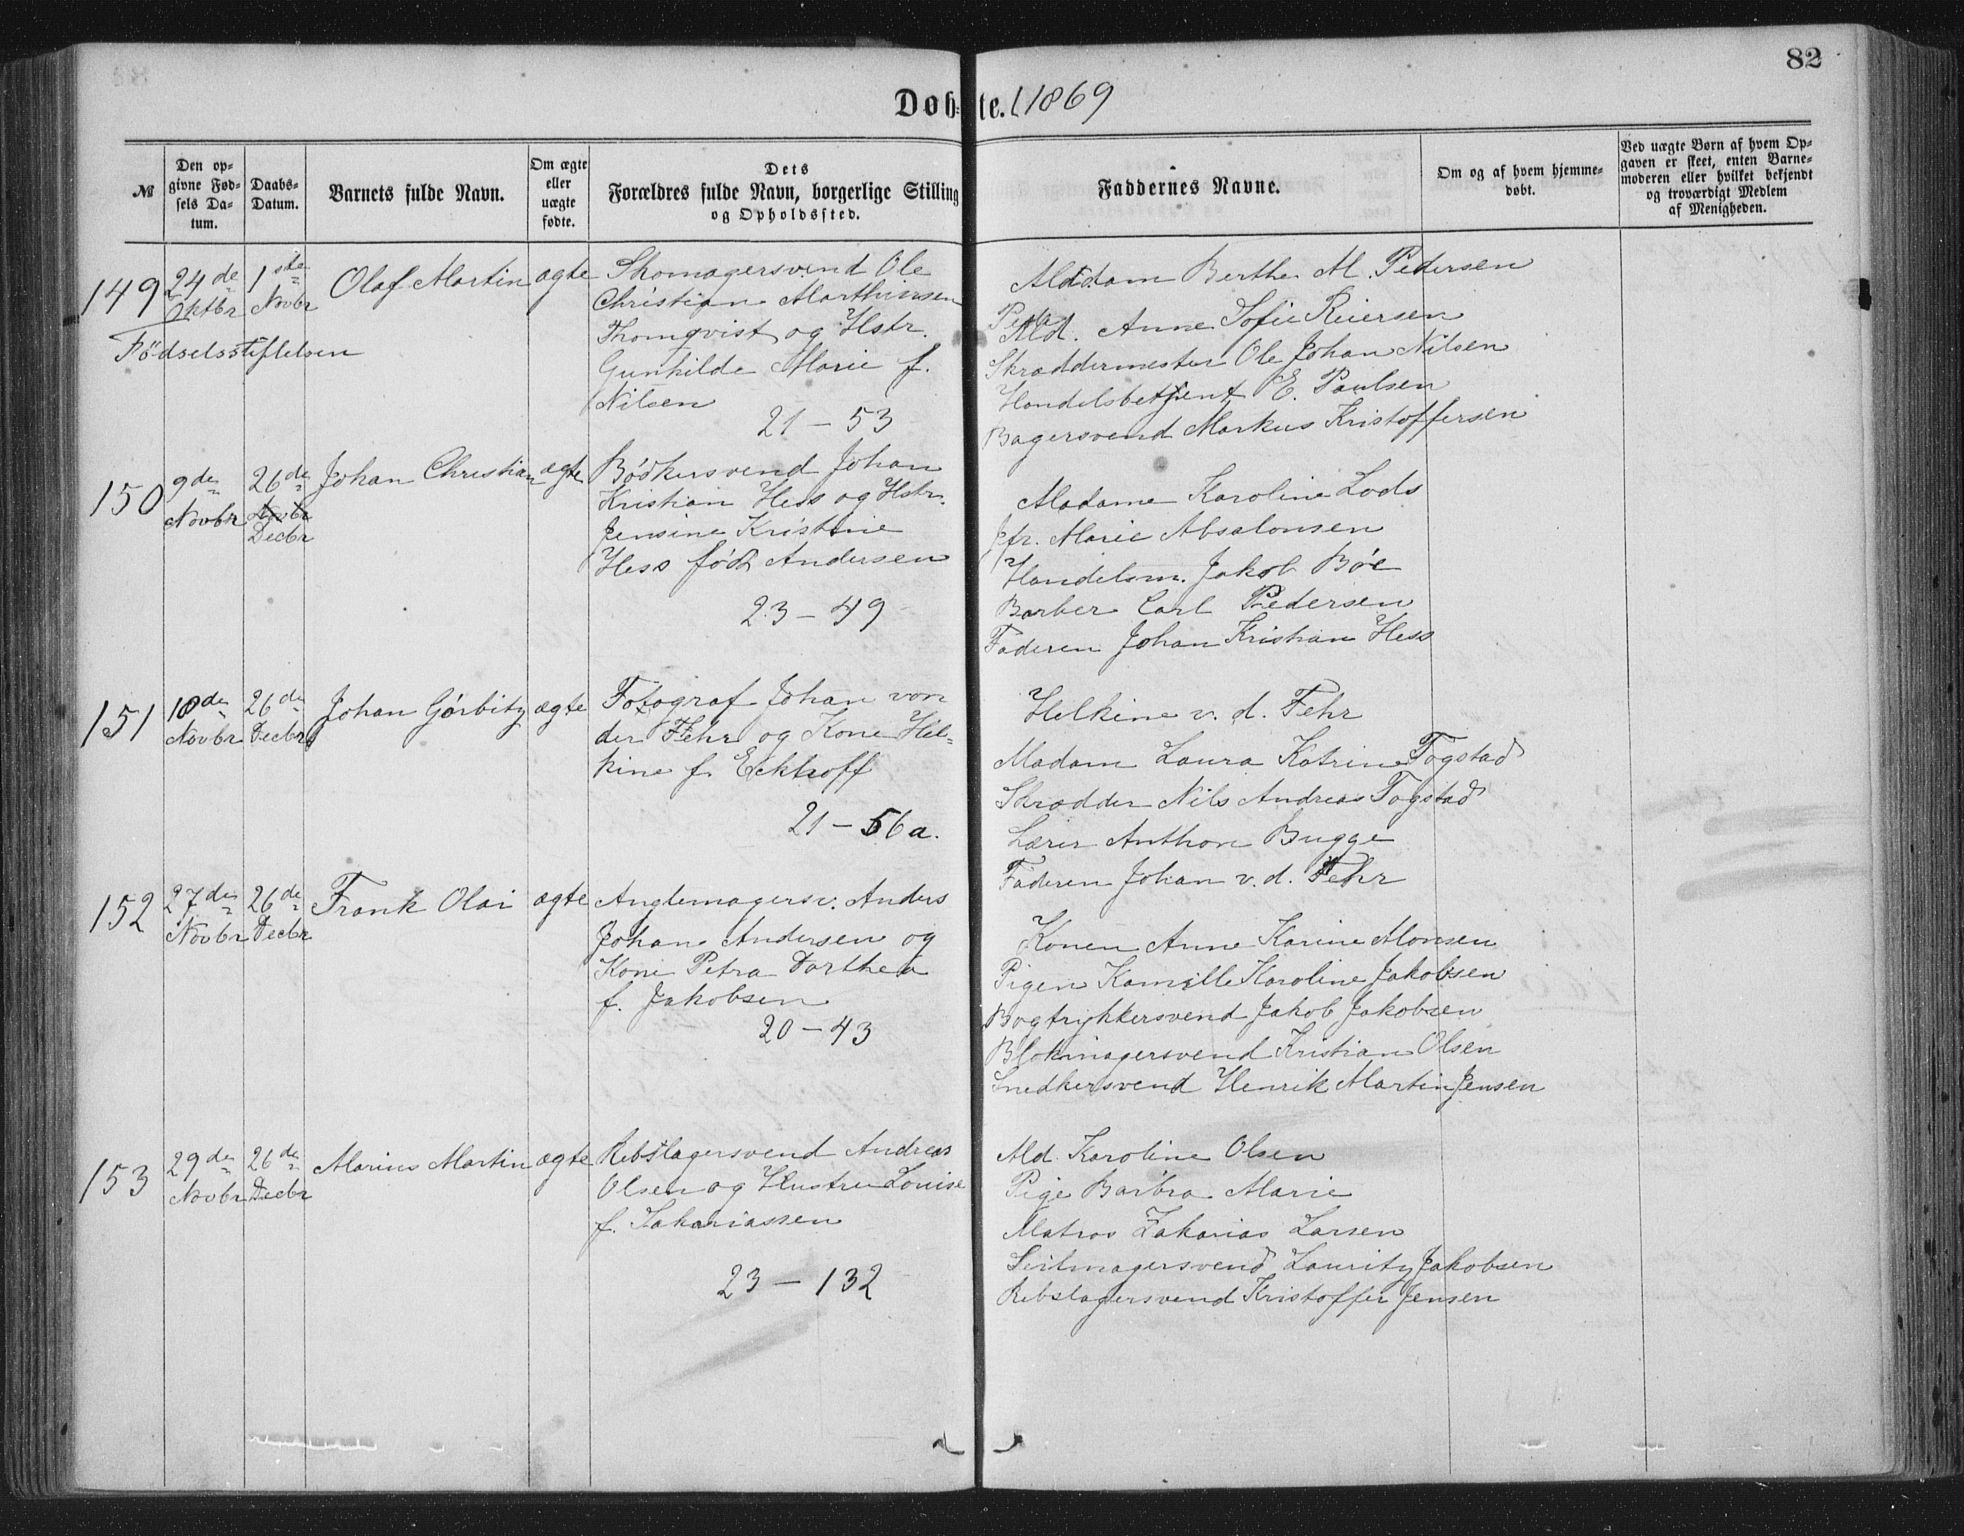 82
Døbte. 1869
№
Den op-
givne Fød-
sels Da-
tum.
Daabs-
Datum.
Barnets fulde Navn.
Om ægte
eller
uægte
fødte.
Dets
Forældres fulde Navn, borgerlige Stilling
og Opholdssted.
Faddernes Navne.
Om og af hvem hjemme-
døbt.
Ved uægte Børn af hvem Op-
gaven er skeet, enten Barne-
moderen eller hvilket bekjendt
og troværdigt Medlem
af Menigheden.
149
24de
Oktbr
1ste
Novbr
Olaf Martin
ægte
Fødselsstiftelsen
Skomagersvend Ole
Christian Marthinsen
Thomqvist og Hstr.
Gunhilde Marie f.
Nilsen
21 - 53
Madam Berthe M. Pedersen
Md. Anne Sofie Reiersen
Skræddermester Ole Johan Nilsen
Handelsbetjent E. Paulsen
Bagersvend Markus Kristoffersen
150
9de
Novbr
26de
Novbr
Decbr
Johan Christian
ægte
Bødkersvend Johan
Kristian Hess og Hstr.
Jensine Kristine
Hess født Andersen
23 - 49
Madame Karoline Lods
Jfr. Marie Absalonsen
Handelsm. Jakob Bøe
Barber Carl Pedersen
Faderen Johan Kristian Hess
151
18de
Novbr
26de
Decbr
Johan Gørbitz
ægte
Fotograf Johan von
der Fehr og Kone Hel-
kine f. Eckhoff
21 - 56a.
Helkine v. d. Fehr
Madam Laura Katrine Fogstad
Skrædder Nils Andreas Fogstad
Lærer Anthon Bugge
Faderen Johan v. d. Fehr
152
27de
Novbr
26de
Decbr
Frank Olai
ægte
Anglemagersv. Anders
Johan Andersen og
Kone Petra Dorthea
f. Jakobsen
20 - 43
Konen Anne Karine Monsen
Pigen Kamille Karoline Jakobsen
Bogtrykkersvend Jakob Jakobsen
Blokmagersvend Kristian Olsen
Snedkersvend Henrik Martin Jensen
153
29de
Novbr
26de
Decbr
Marius Martin
ægte
Rebslagersvend Andreas
Olsen og Hustru Louise
f. Sakariassen
23 - 132
Md. Karoline Olsen
Pige Barbra Marie
Matros Zakarias Larsen
Seilmagersvend Lauritz Jakobsen
Rebslagersvend Kristoffer Jensen